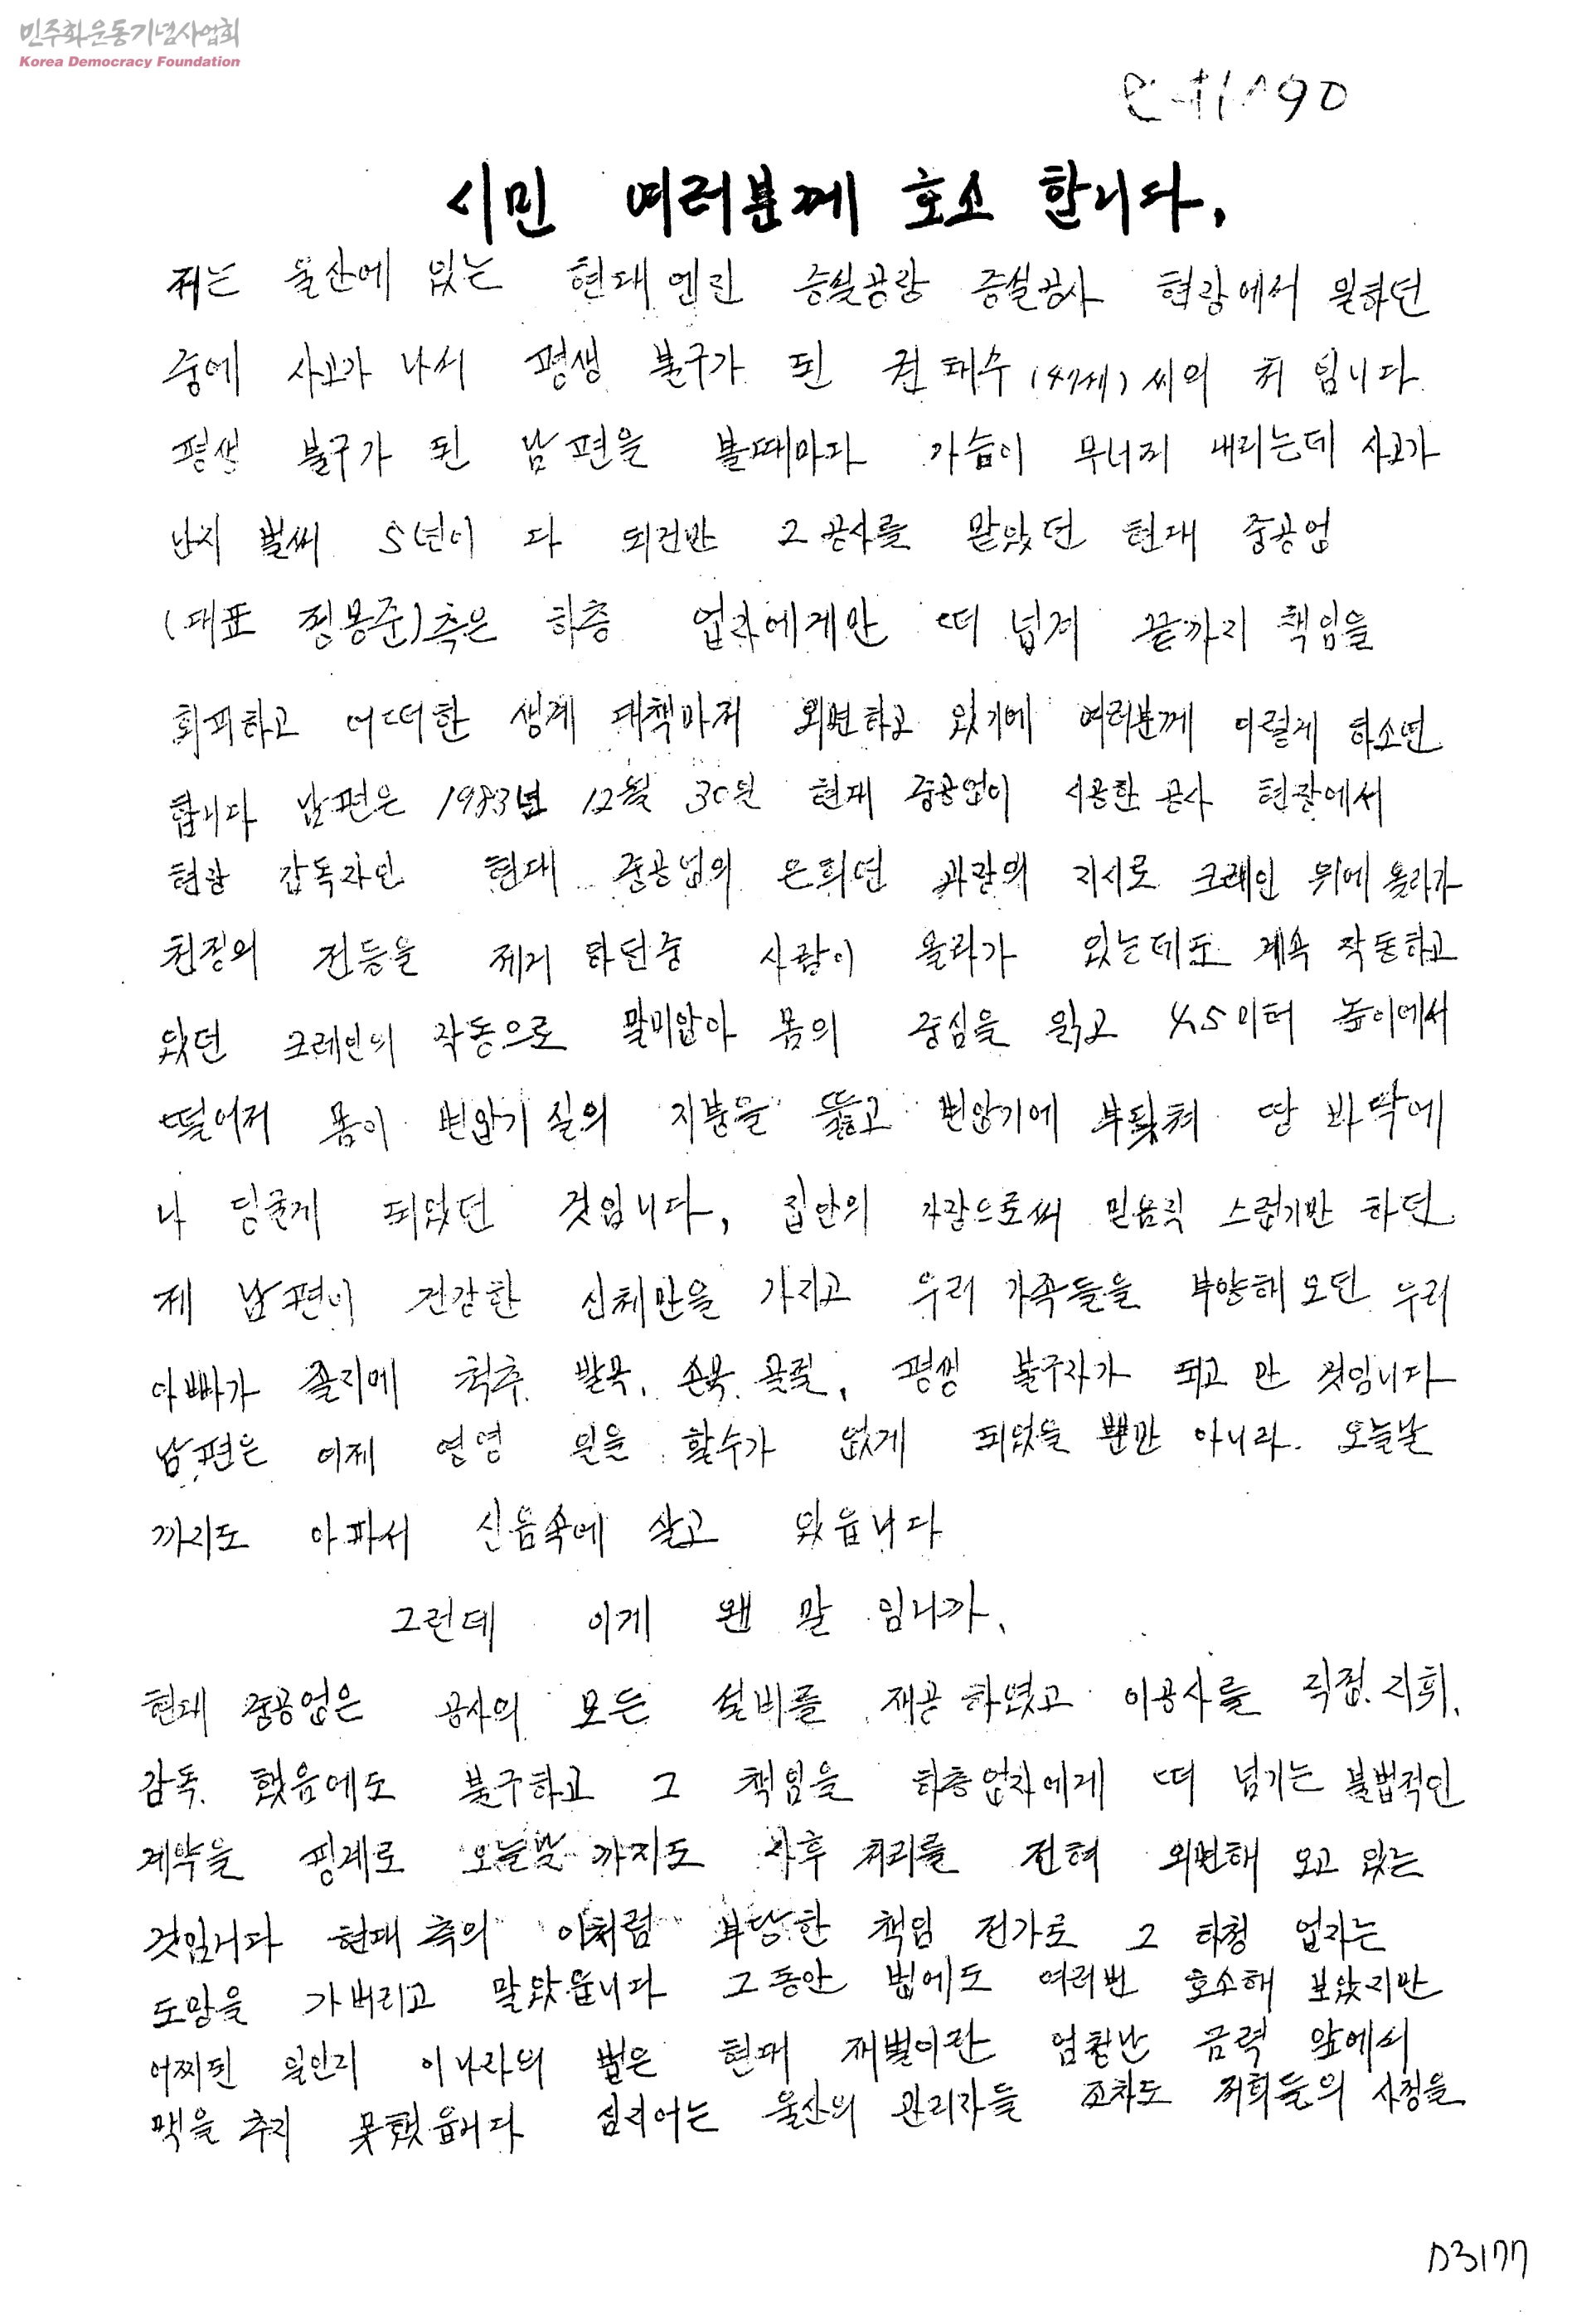 민주화운동기념사업회
Korea Democracy Foundation
시민 여러분께 호소 합니다.
저는 울산에 있는 현대엔진 증설공장 증설공사 현장에서 일하던
중에 사고가 나서 평생 불구가 된 권태수(47세)씨의 처 입니다
평생 불구가 된 남편을 볼때마다 가슴이 무너져 내리는데 사고가
난지 벌써 5년이 다 되건만 그 공사를 맡았던 현대 중공업
(대표 정몽준)측은 하층 업자에게만 떠 넘겨 끝까지 책임을
회피하고 어떠한 생계 대책마저 외면하고 있기에 여러분께 이렇게 하소연
합니다 남편은 1983년 12월 30일 현대 중공업이 시공한 공사 현장에서
현장 감독자인 현대 중공업의 은희던 과장의 지시로 크레인 위에 올라가
천정의 전등을 제거 하던중 사람이 올라가 있는데도 계속 작동하고
있던 크레인의 작동으로 말미암아 몸의 중심을 잃고 4.5미터 높이에서
떨어져 몸이 변압기실의 지붕을 뚫고 변압기에 부딪쳐 땅 바닥에
나 딩굴게 되었던 것입니다, 집안의 가장으로써 믿음직 스럽기만 하던
제 남편이 건강한 신체만을 가지고 우리 가족들을 부양해 오던 우리
아빠가 졸지에 척추, 발목, 손목, 골절, 평생 불구자가 되고 만 것입니다
남편은 이제 영영 일을 할수가 없게 되었을 뿐만 아니라. 오늘날
까지도 아파서 신음속에 살고 있읍니다
그런데 이게 왠 말 입니까,
현대 중공업은 공사의 모든 설비를 제공 하였고 이공사를 직접. 지휘.
감독. 했음에도 불구하고 그 책임을 하층업자에게 떠 넘기는 불법적인
계약을 핑계로 오늘날 까지도 사후 처리를 전혀 외면해 오고 있는
것입니다 현대 측의 이처럼 부당한 책임 전가로 그 하청 업자는
도망을 가버리고 말았읍니다 그동안 법에도 여러번 호소해 보았지만
어찌된 일인지 이나라의 법은 현대 재벌이란 엄청난 금력 앞에서
맥을 추지 못했읍니다 심지어는 울산의 관리자들 조차도 저희들의 사정을
D3177